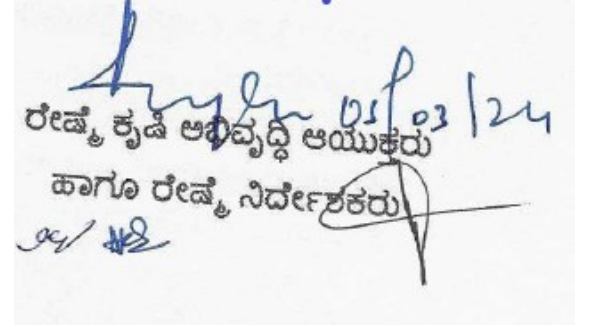 05/03/24
ರೇಷ್ಮೆ ಕೃಷಿ ಅಭಿವೃದ್ಧಿ ಆಯುಕ್ತರು
ಹಾಗೂ ರೇಷ್ಮೆ ನಿರ್ದೇಶಕರು